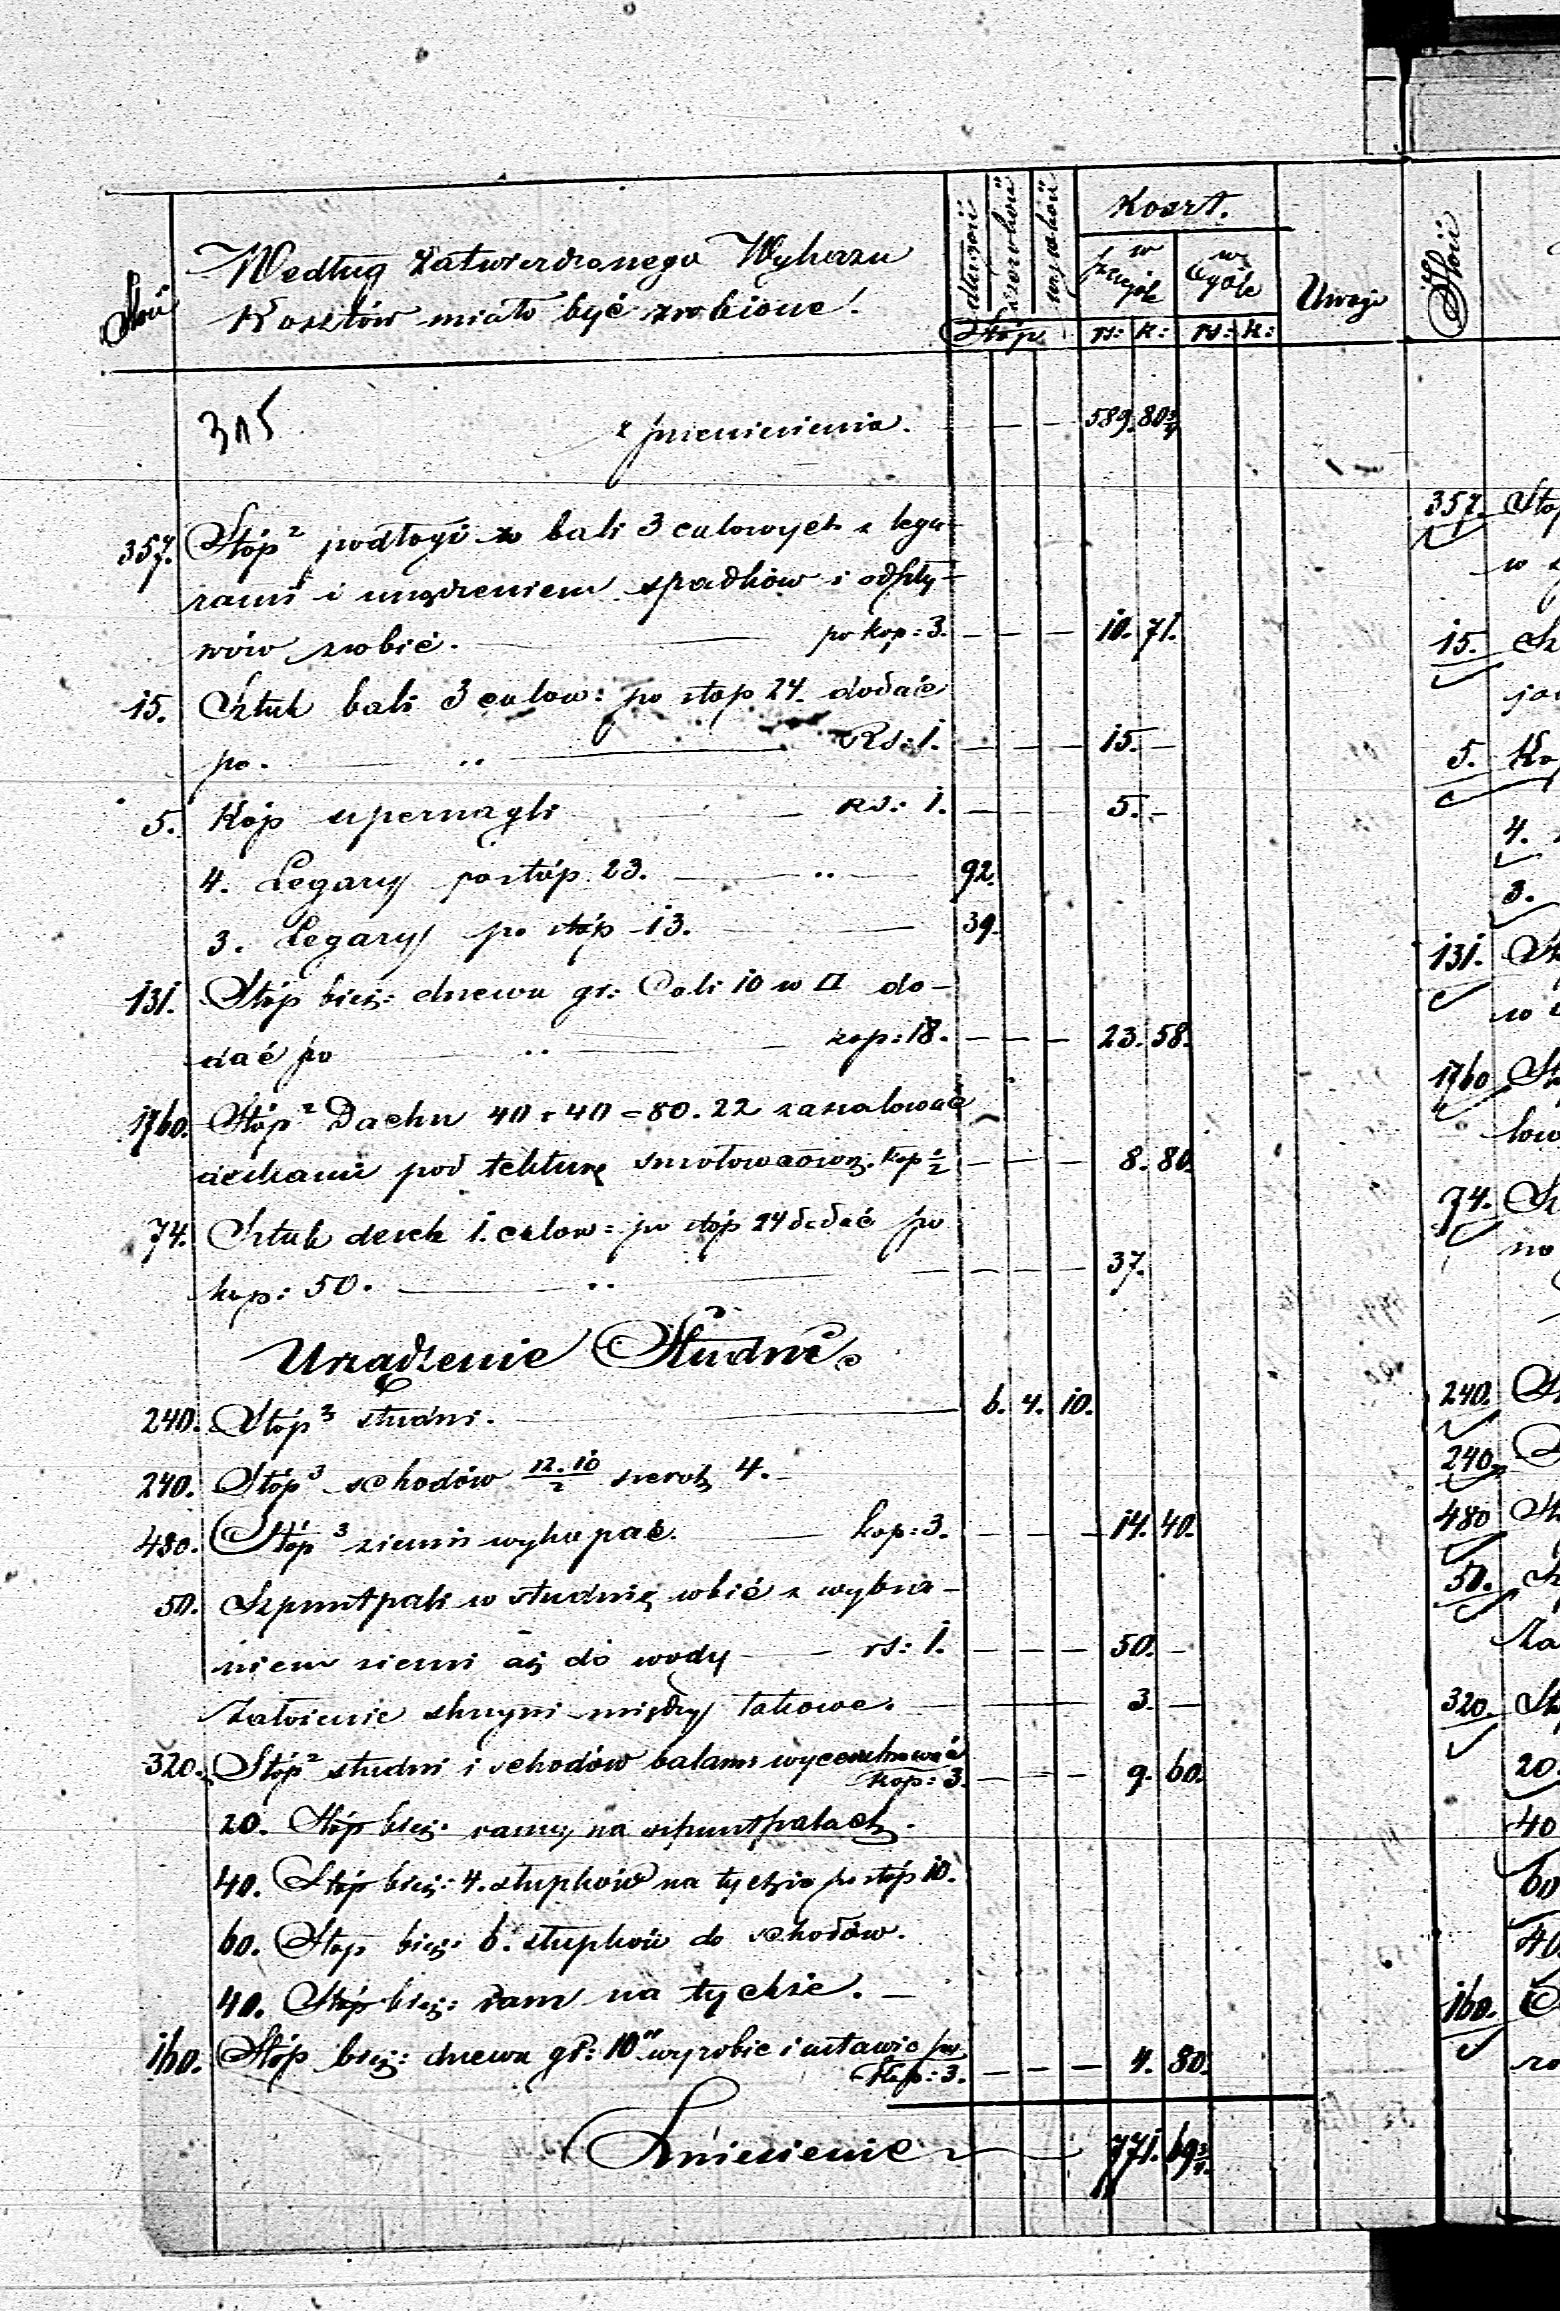 Ilość
Według zatwierdzonego Wykazu
Kosztów miało być zrobione!
długość
szerokość
wysokość
Stóp
Koszt.
w szczególe
w ogóle
rs: k: rs: k:
Uwagi
Ilość
315 z przeniesienia. — — 589. 80 3/4
357. Stóp² podłogi z bali 3 calowych z lega-
rami i urządzeniem spadków i odpły-
wów zrobić. — po kop: 3. — — — 10. 71.
15. Sztuk bali 3 calow: po stop 24. dodać
po. — „ — Rs: 1. — — — 15. —
5. Kóp upernagli — rs: 1. — — 5. —
4. Legary po stóp 23. — „ — 92.
3. Legary po stóp 13. — — 39.
131. Stóp bież: drzewa gr: Cali 10 w □ do-
dać po — „ — kop: 18. — — — 23. 58.
1760. Stóp² Dachu 40 + 40 = 80. 22 zaszalować
deskami pod tekturę smołowcową. kop 1/2 — — — 8. 80.
74. Sztuk desek 1. calow: po stóp 24 dodać po
kop: 50. — „ — — — — 37.
Urządzenie Studni.
240. Stóp³ studni. — 6. 4. 10.
240. Stóp³ schodów 12.10/2 szerok 4. —
480. Stóp³ ziemi wykopać. — kop: 3. — — — 14. 40.
50. Szpuntpali w studnię wbić z wybra-
niem ziemi aż do wody — rs: 1. — — — 50. —
Założenie skrzyni między takowe. — 3. —
320. Stóp² studni i schodów balami
kop: 3. — — — 9. 60.
20. Stóp bież: ramy na szpuntpalach.
40. Stóp bież: 4. słupków na tychże po stóp 10.
60. Stóp bież: 6. słupków do schodów.
40. Stóp bież: ram na tychże. —
160. Stóp bież: drzewa gr: 10" wyrobić i ustawić po
kop: 3. — — — 4. 80.
Zniesienie — 771. 69 3/4.
357.
15.
5.
4.
3.
131.
1760
74.
240.
240.
480
50.
320.
20.
40
60
40.
160.